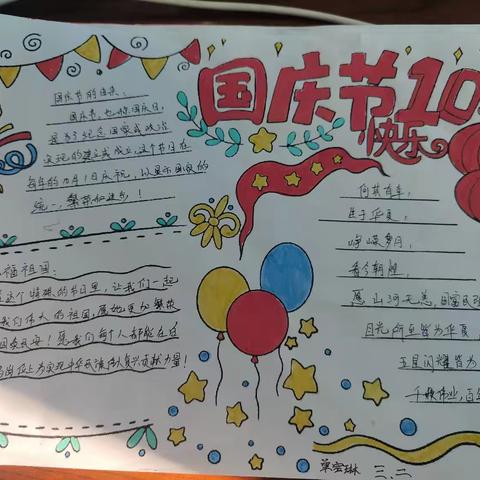 国庆节10.
快乐
国庆节的由来:
国庆节,也称国庆日,
是为了纪念国家或政治
实现的建立或成立,这个节日在
每年的10月1日庆祝,以显示国家的
统一、繁荣和进步!
福祖国:
这个特殊的节日里,让我们一起
我们伟大的祖国,愿她更加繁荣
国泰民安!愿我们每个人都能在自
岗位上为实现中华民族伟大复兴贡献力量!
何其有幸,
生于华夏,
峥嵘岁月,
看今朝,
愿山河无恙,国富民强
目光所至皆为华夏,
五星闪耀皆为
千秋伟业,百
三、二